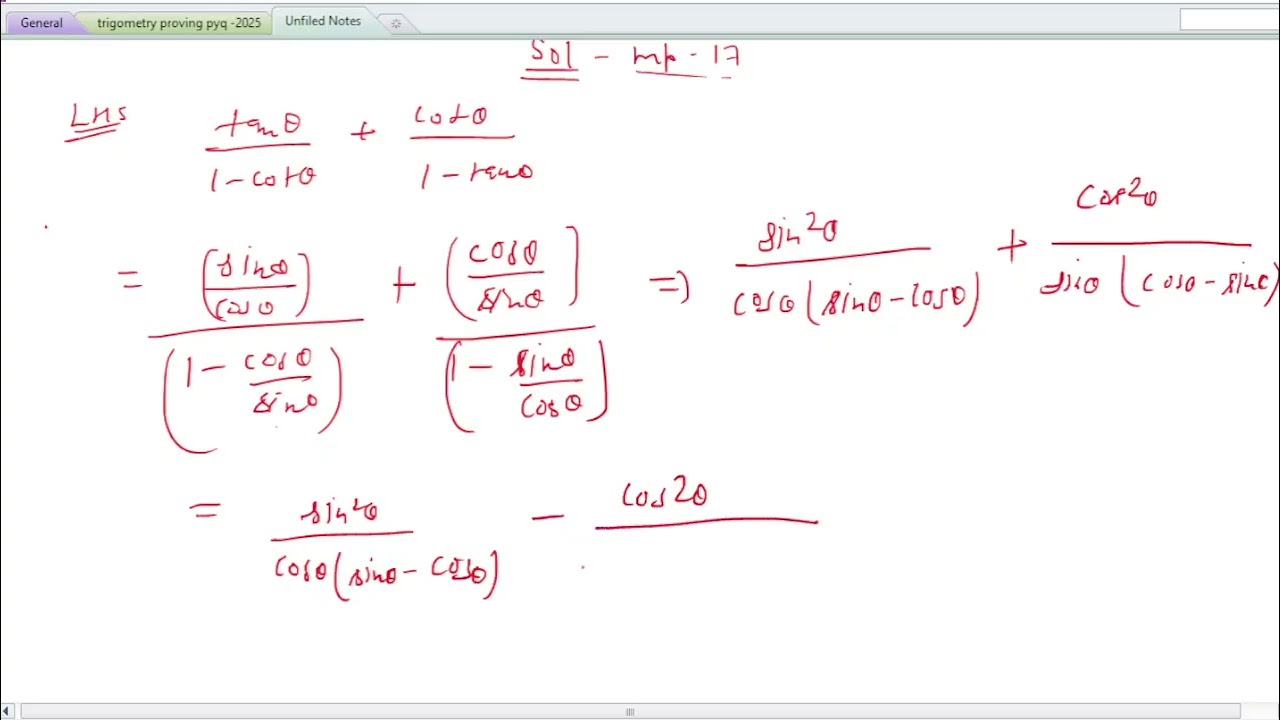 General trigometry proving pyq -2025 Unfiled Notes
Sol - mp - 17
LHS tanθ/(1 - cotθ) + cotθ/(1 - tanθ)
= (sinθ/cosθ)/(1 - cosθ/sinθ) + (cosθ/sinθ)/(1 - sinθ/cosθ) ⇒ sin²θ/cosθ(sinθ - cosθ) + cos²θ/sinθ(cosθ - sinθ)
= sin²θ/cosθ(sinθ - cosθ) - cos²θ